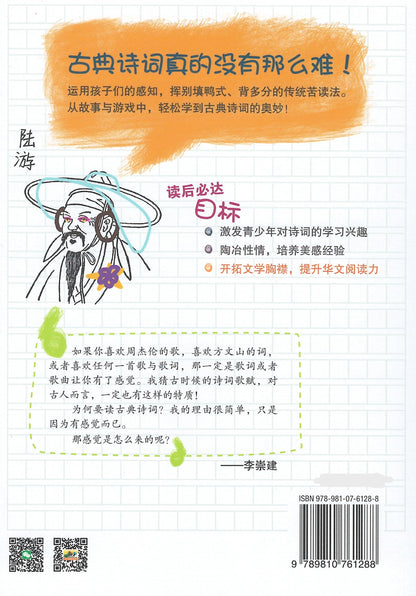 古典诗词真的没有那么难！
运用孩子们的感知，挥别填鸭式、背多分的传统苦读法。
从故事与游戏中，轻松学到古典诗词的奥妙！
陆游
读后必达
目标
激发青少年对诗词的学习兴趣
陶冶性情，培养美感经验
开拓文学胸襟，提升华文阅读力
如果你喜欢周杰伦的歌，喜欢方文山的词，
或者喜欢任何一首歌与歌词，那一定是歌词或者
歌曲让你有了感觉。我猜古时候的诗词歌赋，对
古人而言，一定也有这样的特质！
为何要读古典诗词？我的理由很简单，只是
因为有感觉而已。
那感觉是怎么来的呢？
——李崇建
ISBN 978-981-07-6128-8
9 789810 761288